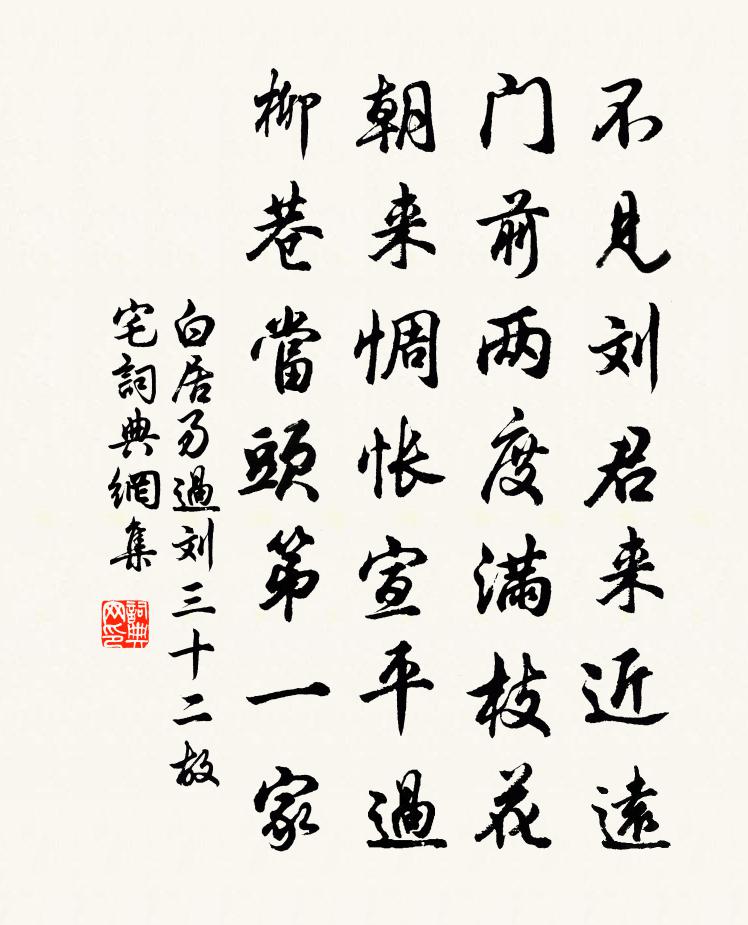 不見刘君来近遠
门前两度满枝花
朝来惆怅宣平過
柳巷當頭第一家
白居易過刘三十二故
宅詞典網集
詞典网印